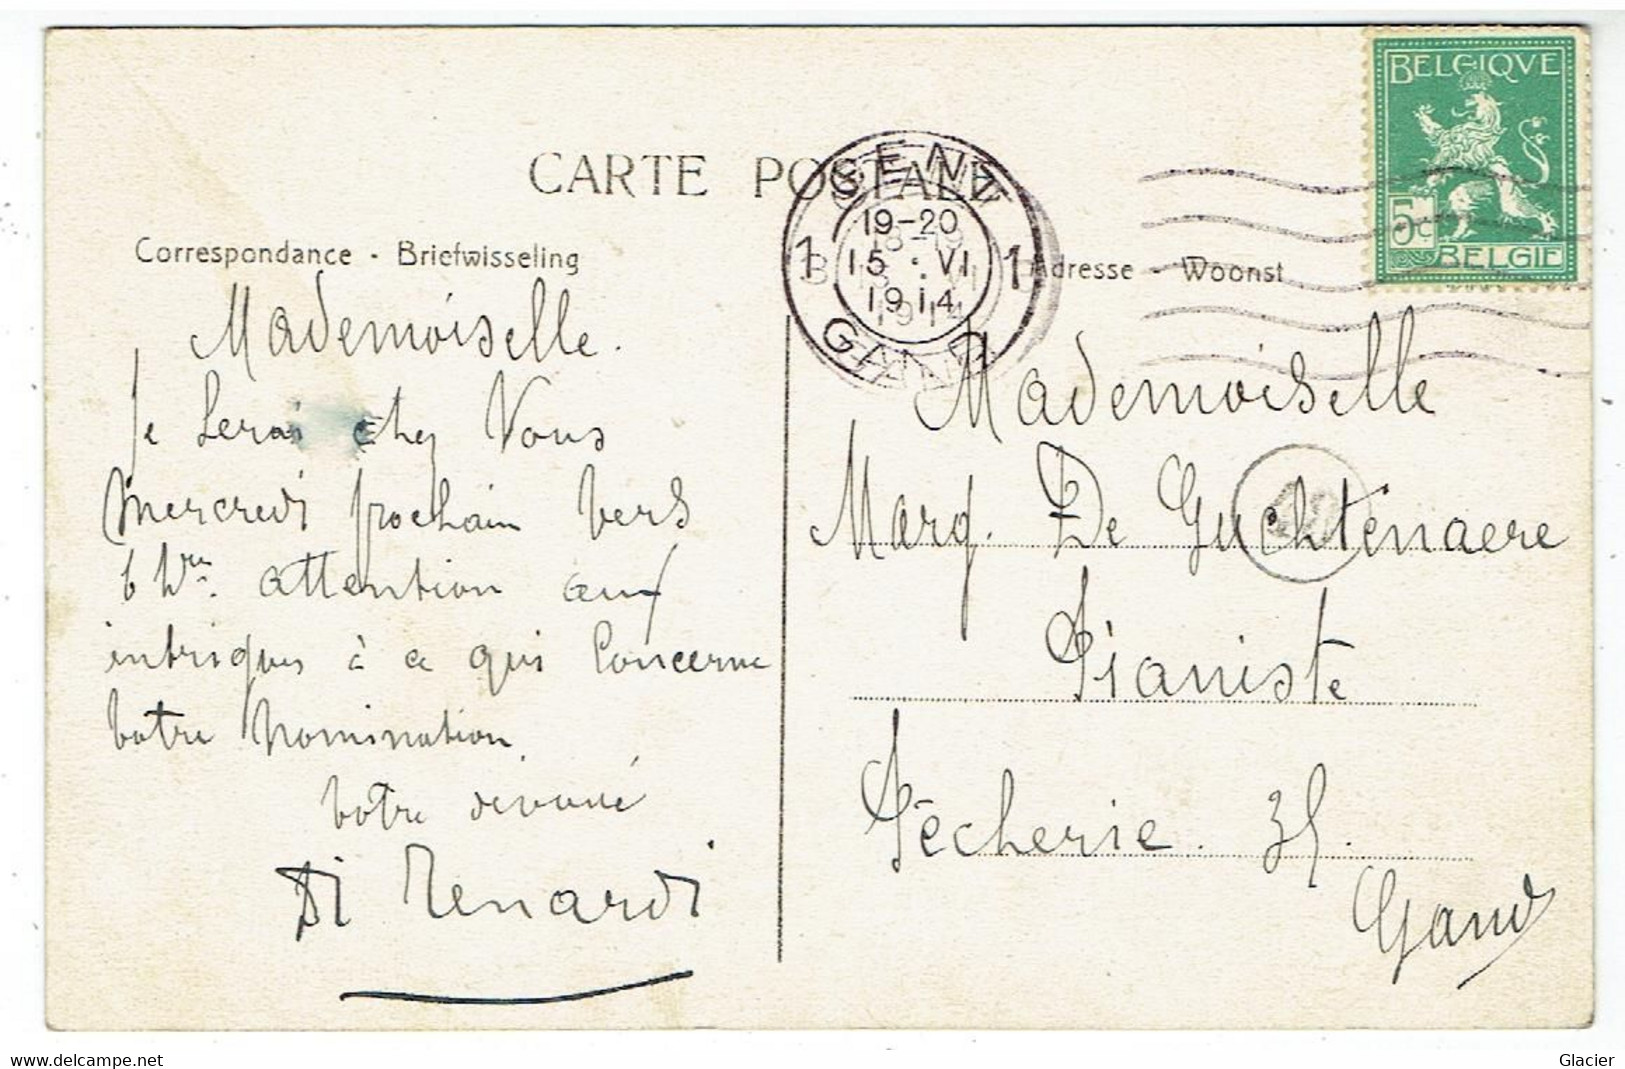 CARTE POSTALE
Correspondance - Briefwisseling
Adresse - Woonst
BELGIQVE
5c
BELGIE
GENT
19-20
15 VI
1914
1 1
GAND
Mademoiselle.
Je serai chez Vous
mercredi prochain vers
6 hres. attention aux
intrigues à ce qui concerne
votre nomination
votre dévoué
Di Renardi
Mademoiselle
Marg. De Guchtenaere
Pianiste
Pêcherie. 35.
Gand
Glacier